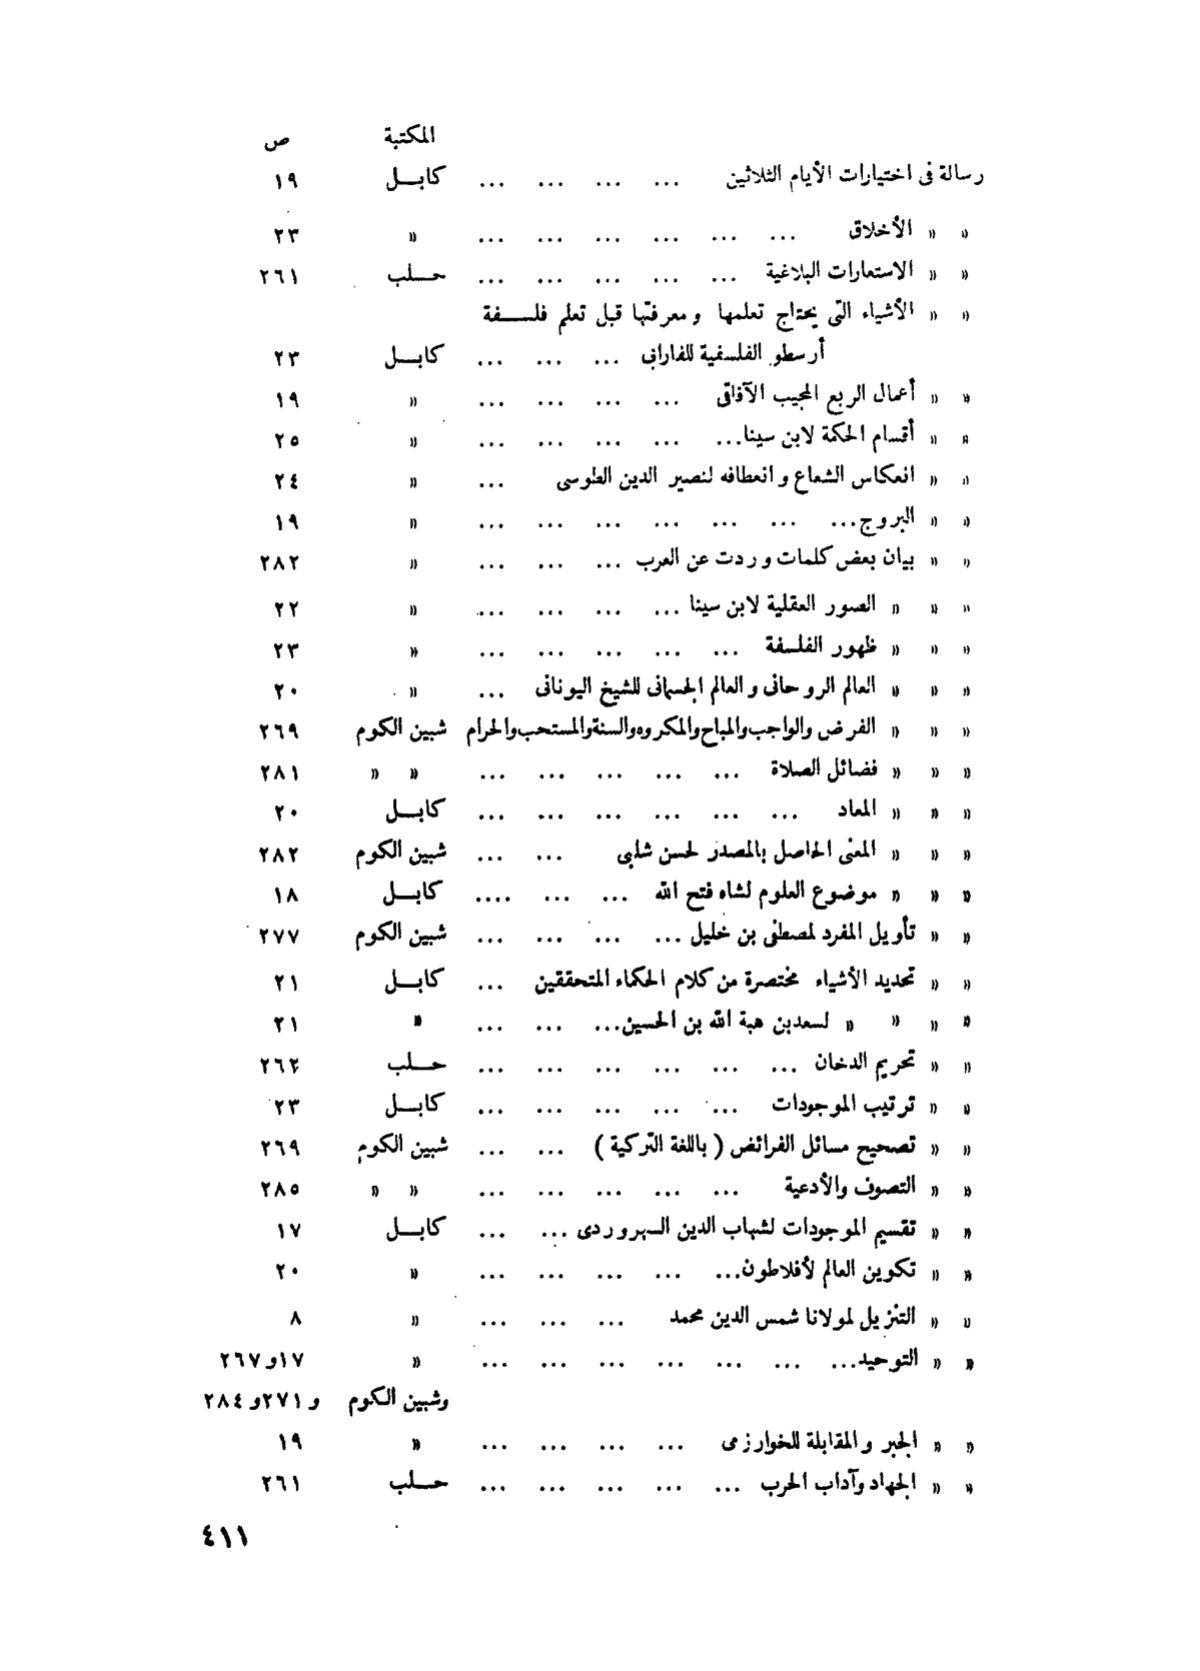 المكتبة ص
رسالة فى اختيارات الأيام الثلاثين ... ... ... ... كابــل ١٩
» » الأخلاق ... ... ... ... ... ... » ٢٣
» » الاستعارات البلاغية ... ... ... ... ... حــلب ٢٦١
» » الأشياء التى يحتاج تعلمها ومعرفتها قبل تعلم فلســفة
أرسطو الفلسفية للفارابى ... ... ... كابــل ٢٣
» » أعمال الربع المجيب الآفاقى ... ... ... ... » ١٩
» » أقسام الحكمة لابن سينا... ... ... ... ... » ٢٥
» » انعكاس الشعاع وانعطافه لنصير الدين الطوسى ... » ٢٤
» » البروج... ... ... ... ... ... ... » ١٩
» » بيان بعض كلمات وردت عن العرب ... ... ... » ٢٨٢
» » » الصور العقلية لابن سينا ... ... ... ... » ٢٢
» » » ظهور الفلسفة ... ... ... ... ... » ٢٣
» » » العالم الروحانى والعالم الجسمانى للشيخ اليونانى ... » ٢٠
» » » الفرض والواجب والمباح والمكروه والسنة والمستحب والحرام شبين الكوم ٢٦٩
» » » فضائل الصلاة ... ... ... ... ... » » ٢٨١
» » » المعاد ... ... ... ... ... ... كابــل ٢٠
» » » المعنى الحاصل بالمصدر لحسن شلبى ... ... شبين الكوم ٢٨٢
» » » موضوع العلوم لشاه فتح الله ... ... .... كابــل ١٨
» » تأويل المفرد لمصطفى بن خليل ... ... ... ... شبين الكوم ٢٧٧
» » تحديد الأشياء مختصرة من كلام الحكماء المتحققين ... كابــل ٢١
» » » » لسعد بن هبة الله بن الحسين... ... ... » ٢١
» » تحريم الدخان ... ... ... ... ... ... حــلب ٢٦٢
» » ترتيب الموجودات ... ... ... ... ... كابــل ٢٣
» » تصحيح مسائل الفرائض ( باللغة التركية ) ... ... شبين الكوم ٢٦٩
» » التصوف والأدعية ... ... ... ... ... » » ٢٨٥
» » تقسيم الموجودات لشهاب الدين السهروردى ... ... كابــل ١٧
» » تكوين العالم لأفلاطون... ... ... ... ... » ٢٠
» » التنزيل لمولانا شمس الدين محمد ... ... ... » ٨
» » التوحيد... ... ... ... ... ... ... » ١٧و٢٦٧
وشبين الكوم و٢٧١و٢٨٤
» » الجبر والمقابلة للخوارزمى ... ... ... ... » ١٩
» » الجهاد وآداب الحرب ... ... ... ... ... حــلب ٢٦١
٤١١